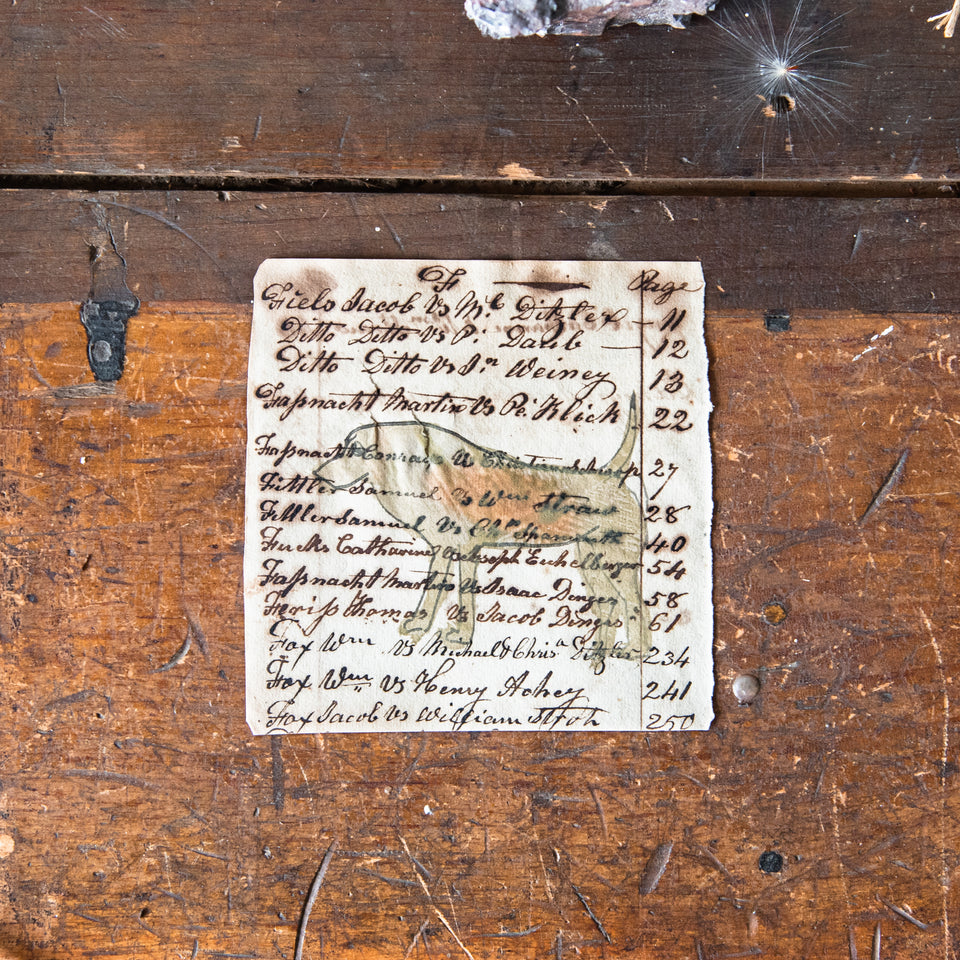 F Page
Fiels Jacob Vs Mc Ditzler — 11
Ditto Ditto Vs P. Daub — 12
Ditto Ditto Vs Jn Weiney 13
Faſsnacht Martin Vs Pe. Klick 22
Faſsnacht Conrad Vs 27
Fittler Samuel Vs Wm Straw 28
Fittler Samuel Vs 40
Fucks Catharine Joseph Eichelberger 54
Faſsnacht Martin Vs Isaac Dinges 58
Feriſs Thomas Vs Jacob Dinges 61
Fox Wm Vs Michael & Chrisn Ditzler 234
Fox Wm Vs Henry Achey 241
Fox Jacob Vs William Stroh 250